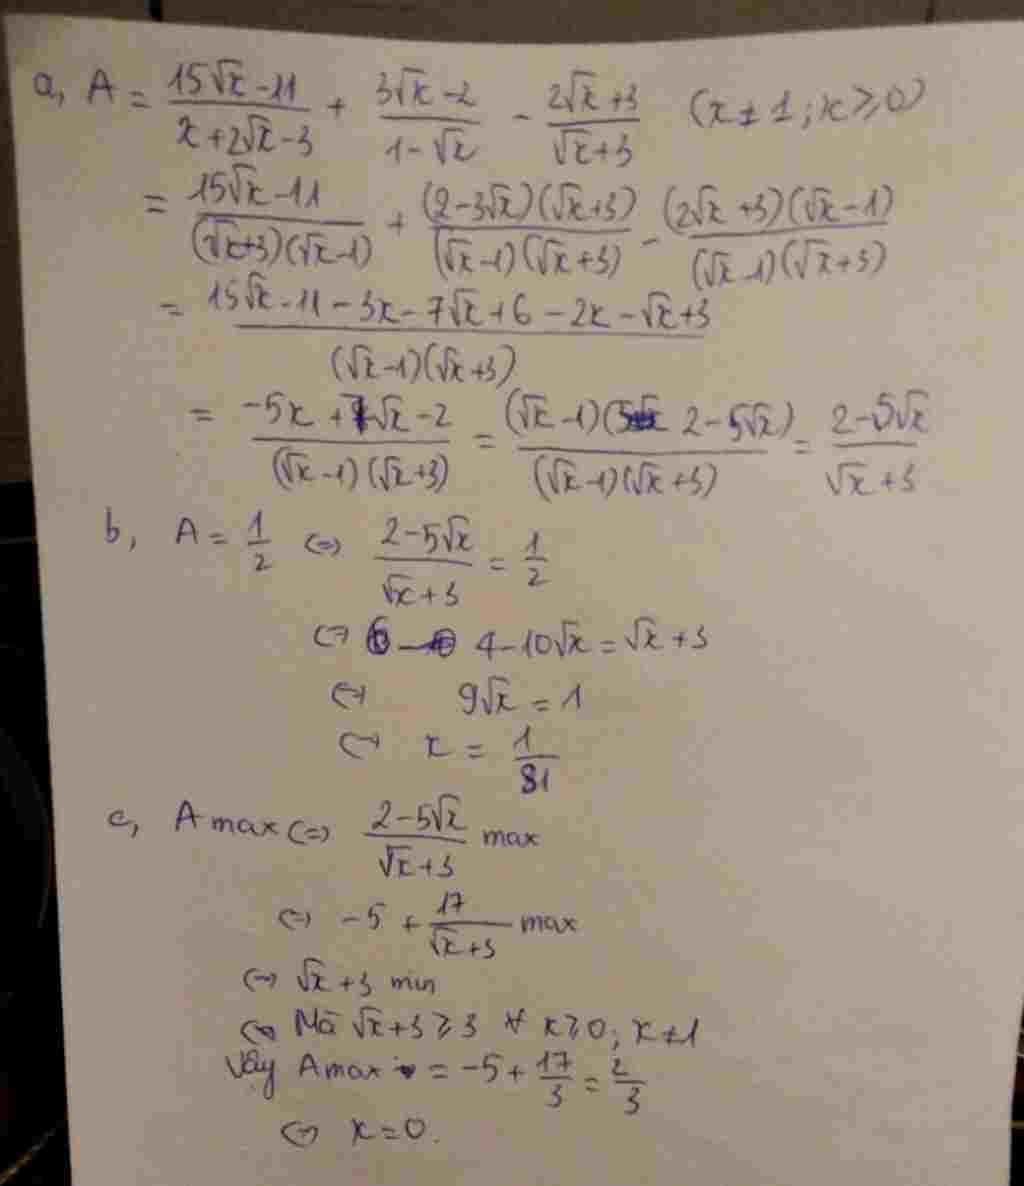 a, A = \frac{15\sqrt{x}-11}{x+2\sqrt{x}-3} + \frac{3\sqrt{x}-2}{1-\sqrt{x}} - \frac{2\sqrt{x}+3}{\sqrt{x}+3} (x≠1; x≥0)
= \frac{15\sqrt{x}-11}{(\sqrt{x}+3)(\sqrt{x}-1)} + \frac{(2-3\sqrt{x})(\sqrt{x}+3)}{(\sqrt{x}-1)(\sqrt{x}+3)} - \frac{(2\sqrt{x}+3)(\sqrt{x}-1)}{(\sqrt{x}-1)(\sqrt{x}+3)}
= \frac{15\sqrt{x}-11-3x-7\sqrt{x}+6-2x-\sqrt{x}+3}{(\sqrt{x}-1)(\sqrt{x}+3)}
= \frac{-5x+7\sqrt{x}-2}{(\sqrt{x}-1)(\sqrt{x}+3)} = \frac{(\sqrt{x}-1)(2-5\sqrt{x})}{(\sqrt{x}-1)(\sqrt{x}+3)} = \frac{2-5\sqrt{x}}{\sqrt{x}+3}
b, A = \frac{1}{2} ⇔ \frac{2-5\sqrt{x}}{\sqrt{x}+3} = \frac{1}{2}
⇔ 4-10\sqrt{x} = \sqrt{x}+3
⇔ 9\sqrt{x} = 1
⇔ x = \frac{1}{81}
c, A max ⇔ \frac{2-5\sqrt{x}}{\sqrt{x}+3} max
⇔ -5 + \frac{17}{\sqrt{x}+3} max
⇔ \sqrt{x}+3 min
⇔ Mà \sqrt{x}+3 ≥ 3 ∀ x≥0; x≠1
Vậy A max = -5 + \frac{17}{3} = \frac{2}{3}
⇔ x=0.